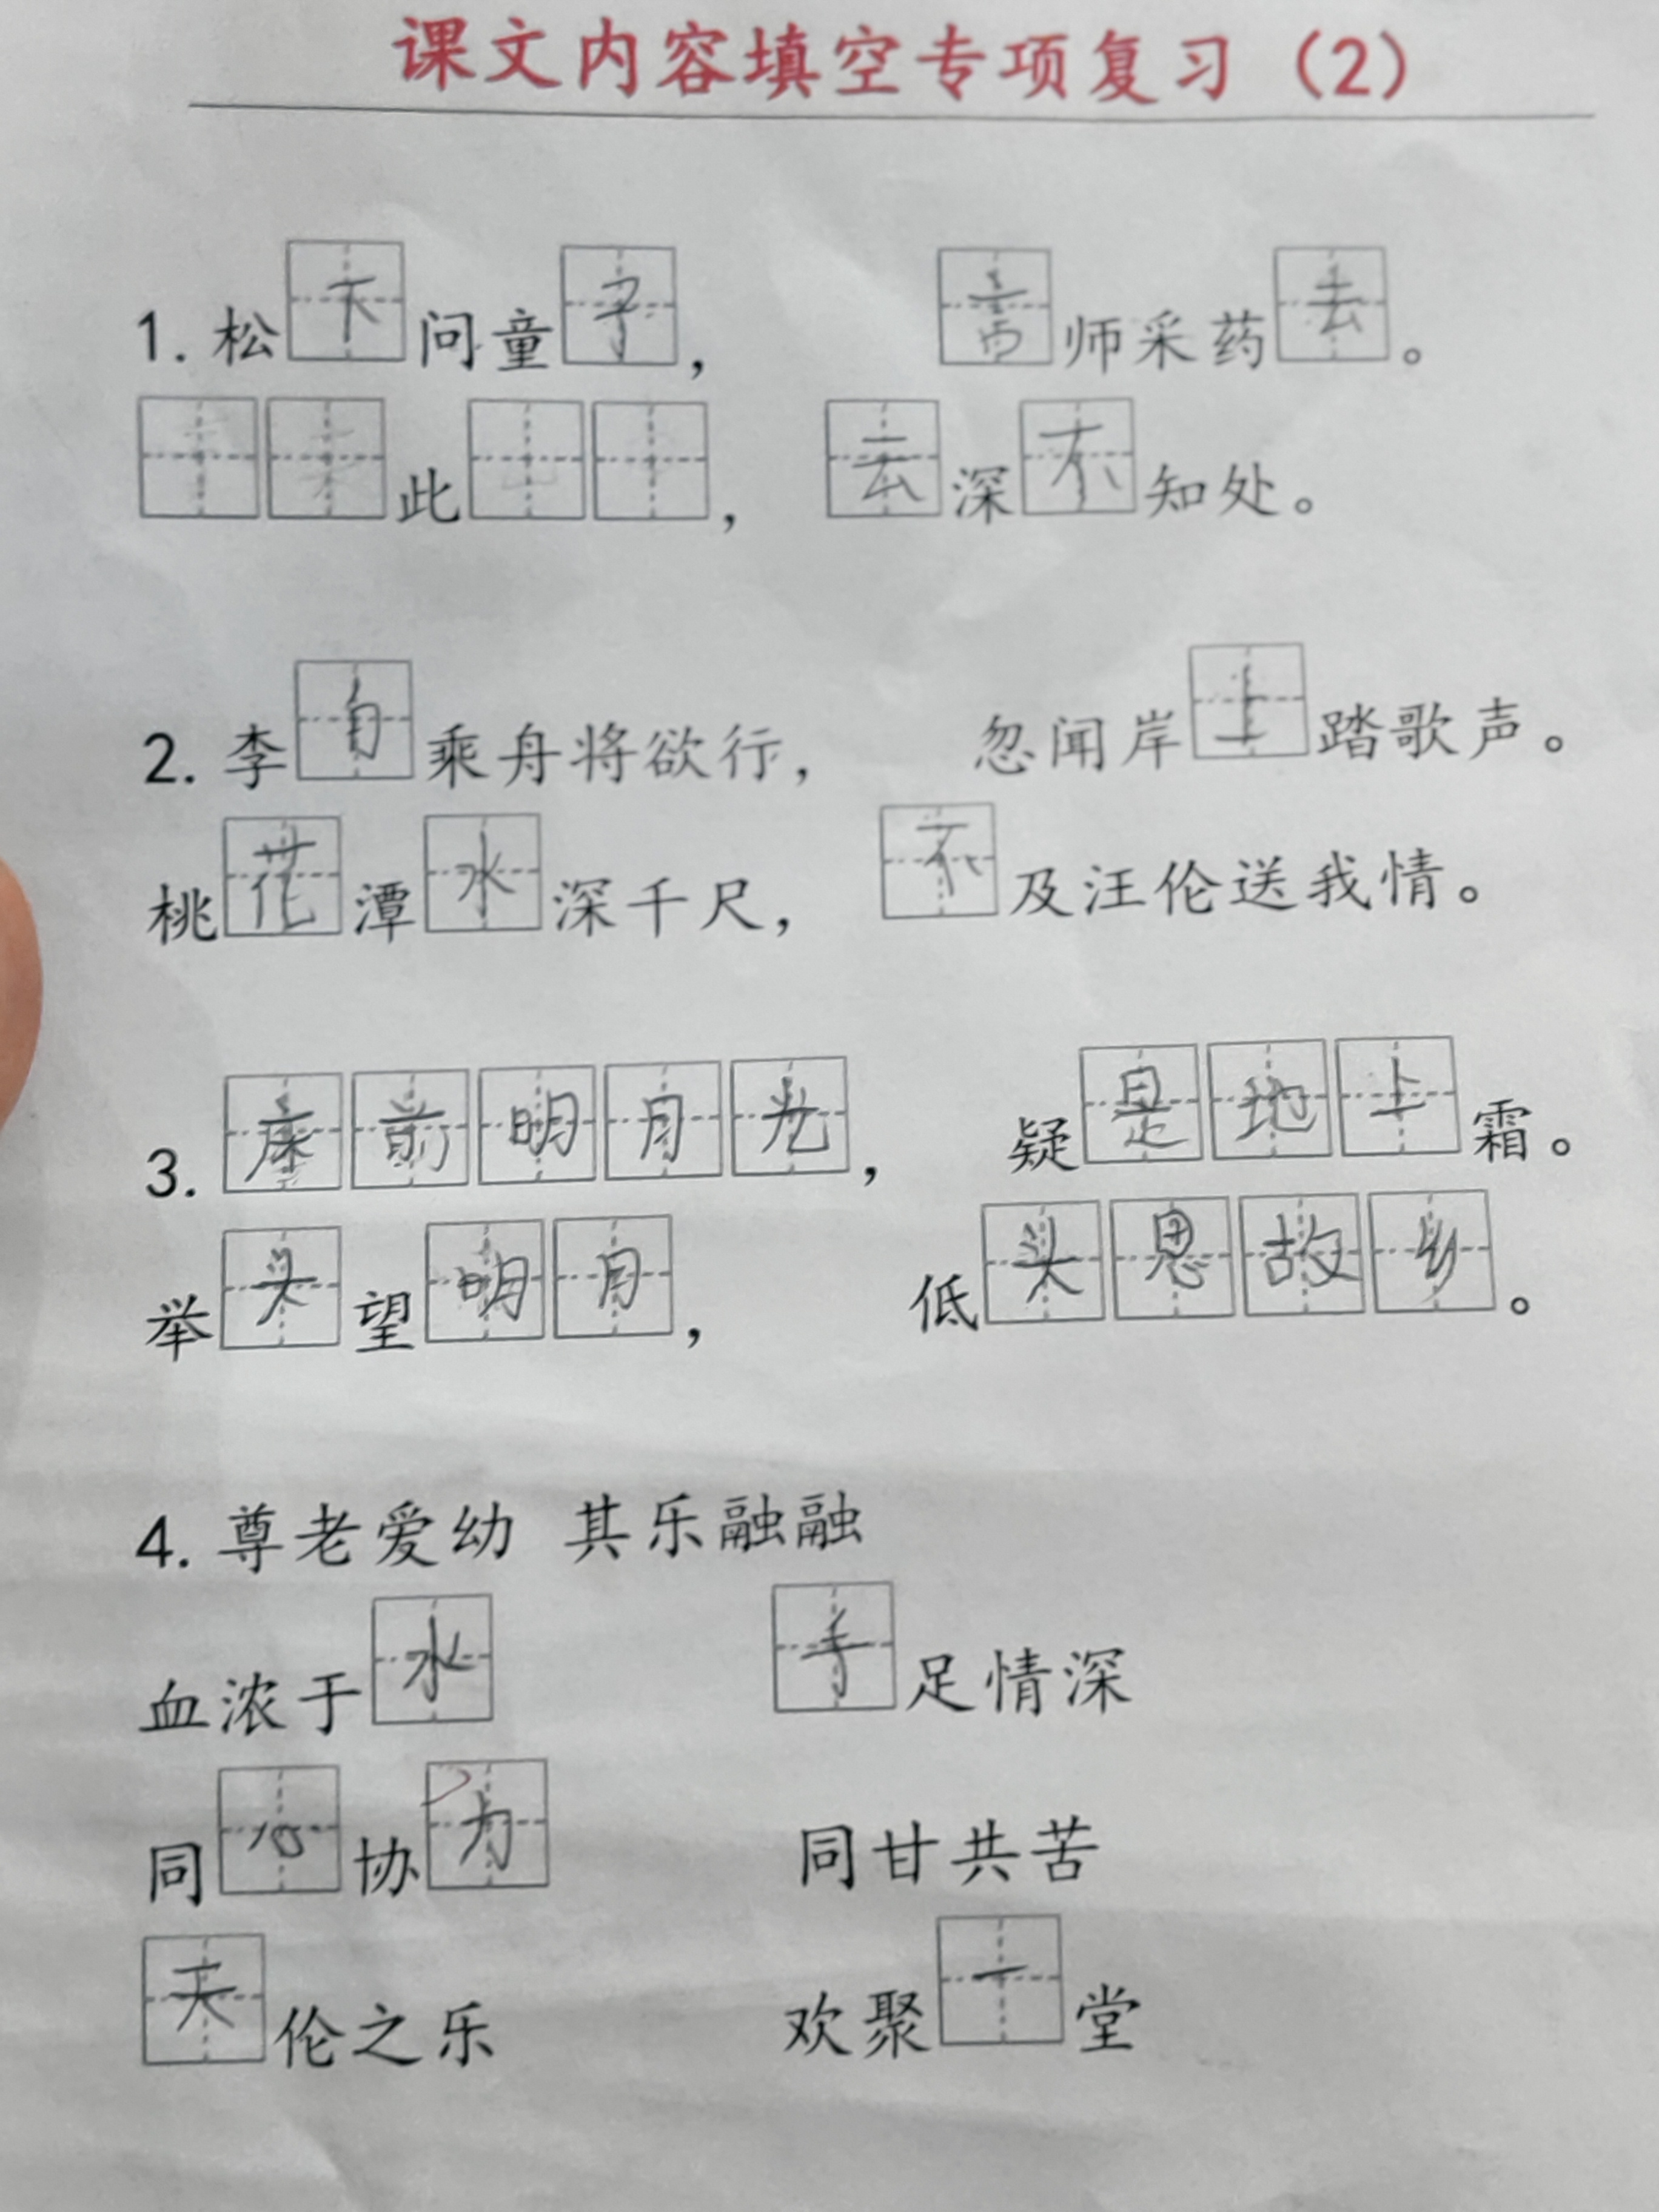 课文内容填空专项复习（2）
1. 松下问童子， 言师采药去。
此 ， 云深不知处。
2. 李白乘舟将欲行， 忽闻岸上踏歌声。
桃花潭水深千尺， 不及汪伦送我情。
3. 床前明月光， 疑是地上霜。
举头望明月， 低头思故乡。
4. 尊老爱幼 其乐融融
血浓于水 手足情深
同心协力 同甘共苦
天伦之乐 欢聚一堂